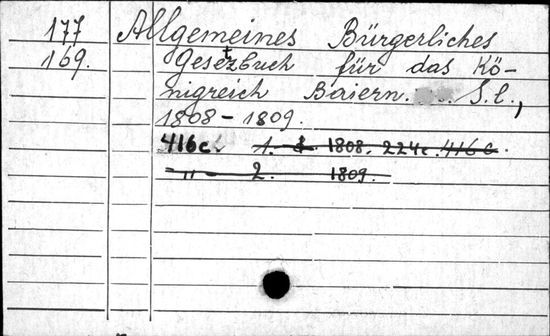 177 Allgemeines Bürgerliches
169. Gesetzbuch für das Kö-
nigreich Baiern. S.l.,
1808-1809.
416c. 1. 1808. 224c. 416c.
" - 2. 1809.